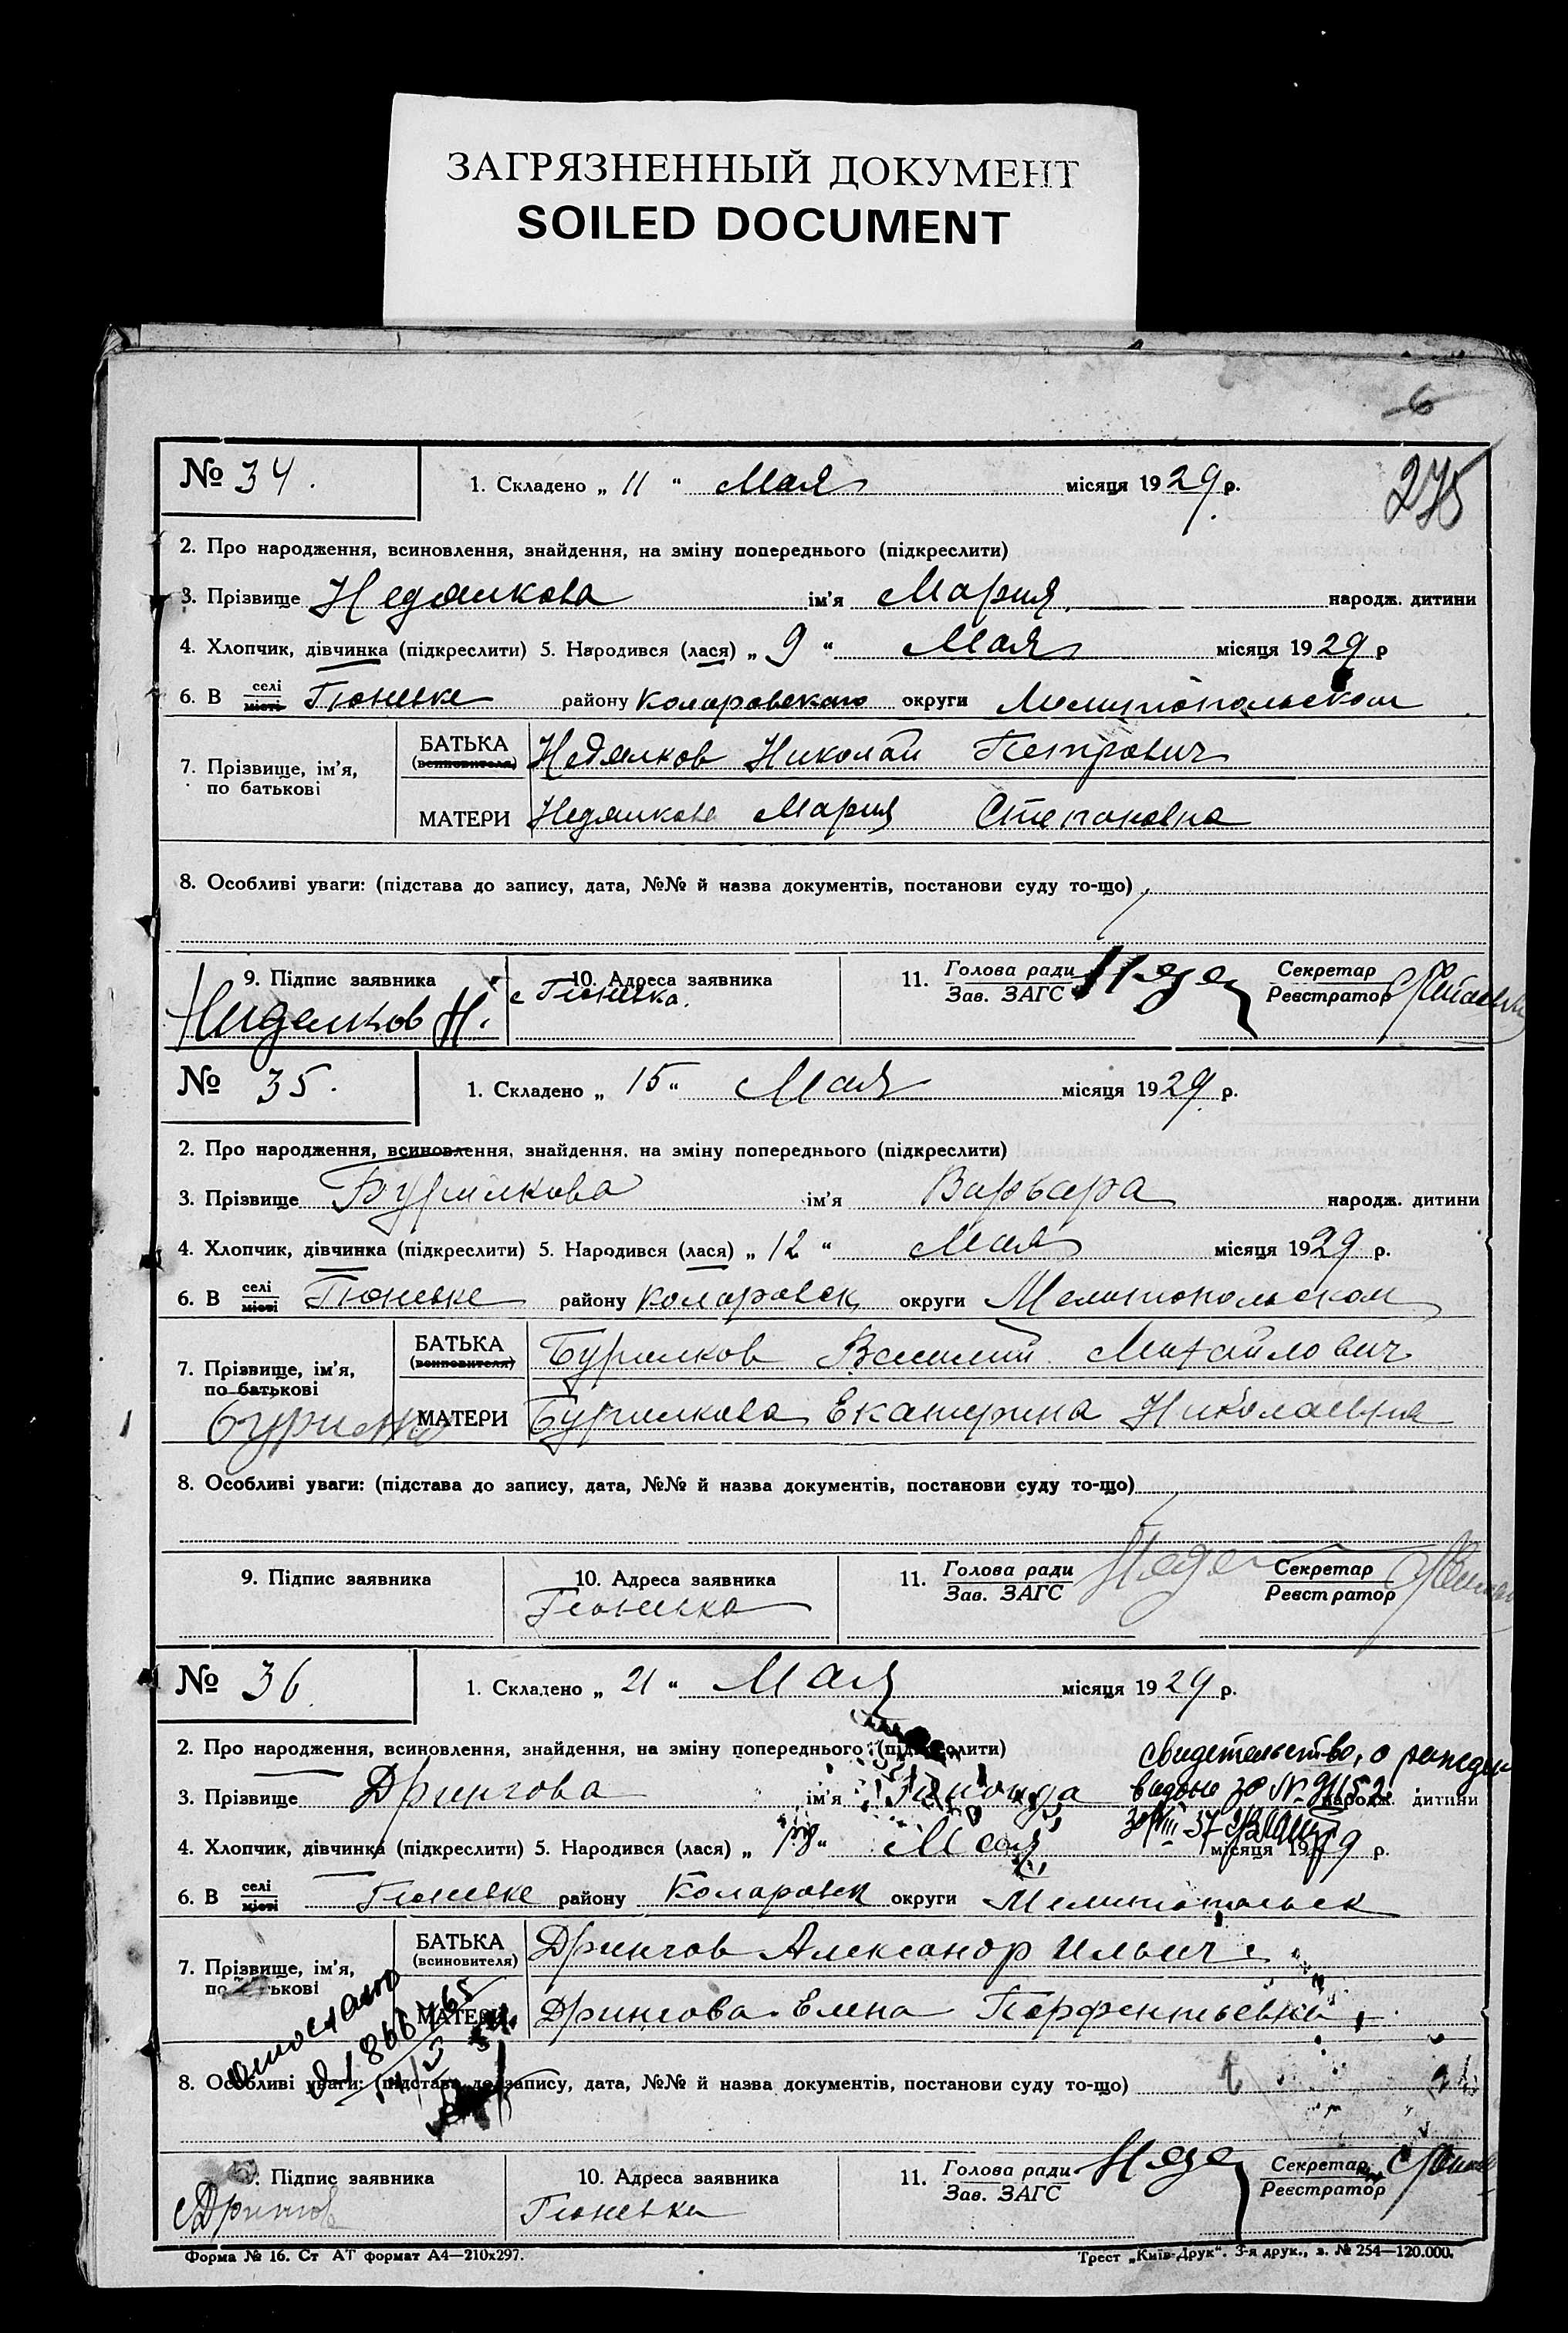 ЗАГРЯЗНЕННЫЙ ДОКУМЕНТ
SOILED DOCUMENT
6
275
№ 34. 1. Складено „ 11 “ Мая місяця 1929 р.
2. Про народження, всиновлення, знайдення, на зміну попереднього (підкреслити)
3. Прізвище Недялкова ім’я Мария народж. дитини
4. Хлопчик, дівчинка (підкреслити) 5. Народився (лася) „ 9 “ Мая місяця 1929 р
6. В селі місті Гюневке району Коларовского округи Мелитопольском
7. Прізвище, ім’я, по батькові
БАТЬКА (всиновителя) Недялков Николай Петрович
МАТЕРИ Недялкова Мария Степановна
8. Особливі уваги: (підстава до запису, дата, №№ й назва документів, постанови суду то-що)
9. Підпис заявника 10. Адреса заявника 11. Голова ради Зав. ЗАГС Секретар Реєстратор
Недялков Н. с Гюневка.
№ 35. 1. Складено „ 15 “ Мая місяця 1929 р.
2. Про народження, всиновлення, знайдення, на зміну попереднього (підкреслити)
3. Прізвище Бурлакова ім’я Варвара народж. дитини
4. Хлопчик, дівчинка (підкреслити) 5. Народився (лася) „ 12 “ Мая місяця 1929 р.
6. В селі місті Гюневке району Коларовск округи Мелитопольском
7. Прізвище, ім’я, по батькові
БАТЬКА (всиновителя) Василий Михайлович
МАТЕРИ Екатерина Николаевна
8. Особливі уваги: (підстава до запису, дата, №№ й назва документів, постанови суду то-що)
9. Підпис заявника 10. Адреса заявника 11. Голова ради Зав. ЗАГС Секретар Реєстратор
Гюневка
№ 36. 1. Складено „ 21 “ Мая місяця 1929 р.
2. Про народження, всиновлення, знайдення, на зміну попереднього (підкреслити)
свидетельство о рожден
3. Прізвище Дрингова ім’я народж. дитини
4. Хлопчик, дівчинка (підкреслити) 5. Народився (лася) „ 18 “ Мая місяця 1929 р.
6. В селі місті Гюневке району Коларовск округи Мелитопольск
7. Прізвище, ім’я, по батькові
БАТЬКА (всиновителя) Дрингов Александр Ильич
МАТЕРИ Дрингова Елена Парфентьевна
8. Особливі уваги: (підстава до запису, дата, №№ й назва документів, постанови суду то-що)
9. Підпис заявника 10. Адреса заявника 11. Голова ради Зав. ЗАГС Секретар Реєстратор
Дрингов Гюневка
Форма № 16. Ст АТ формат А4—210х297. Трест „Київ-Друк“. 3-я друк., з. № 254—120.000.